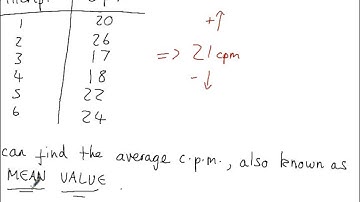 1 20
2 26
3 17 => 21 cpm
4 18
5 22
6 24
+↑
-↓
can find the average c.p.m., also known as
MEAN VALUE.